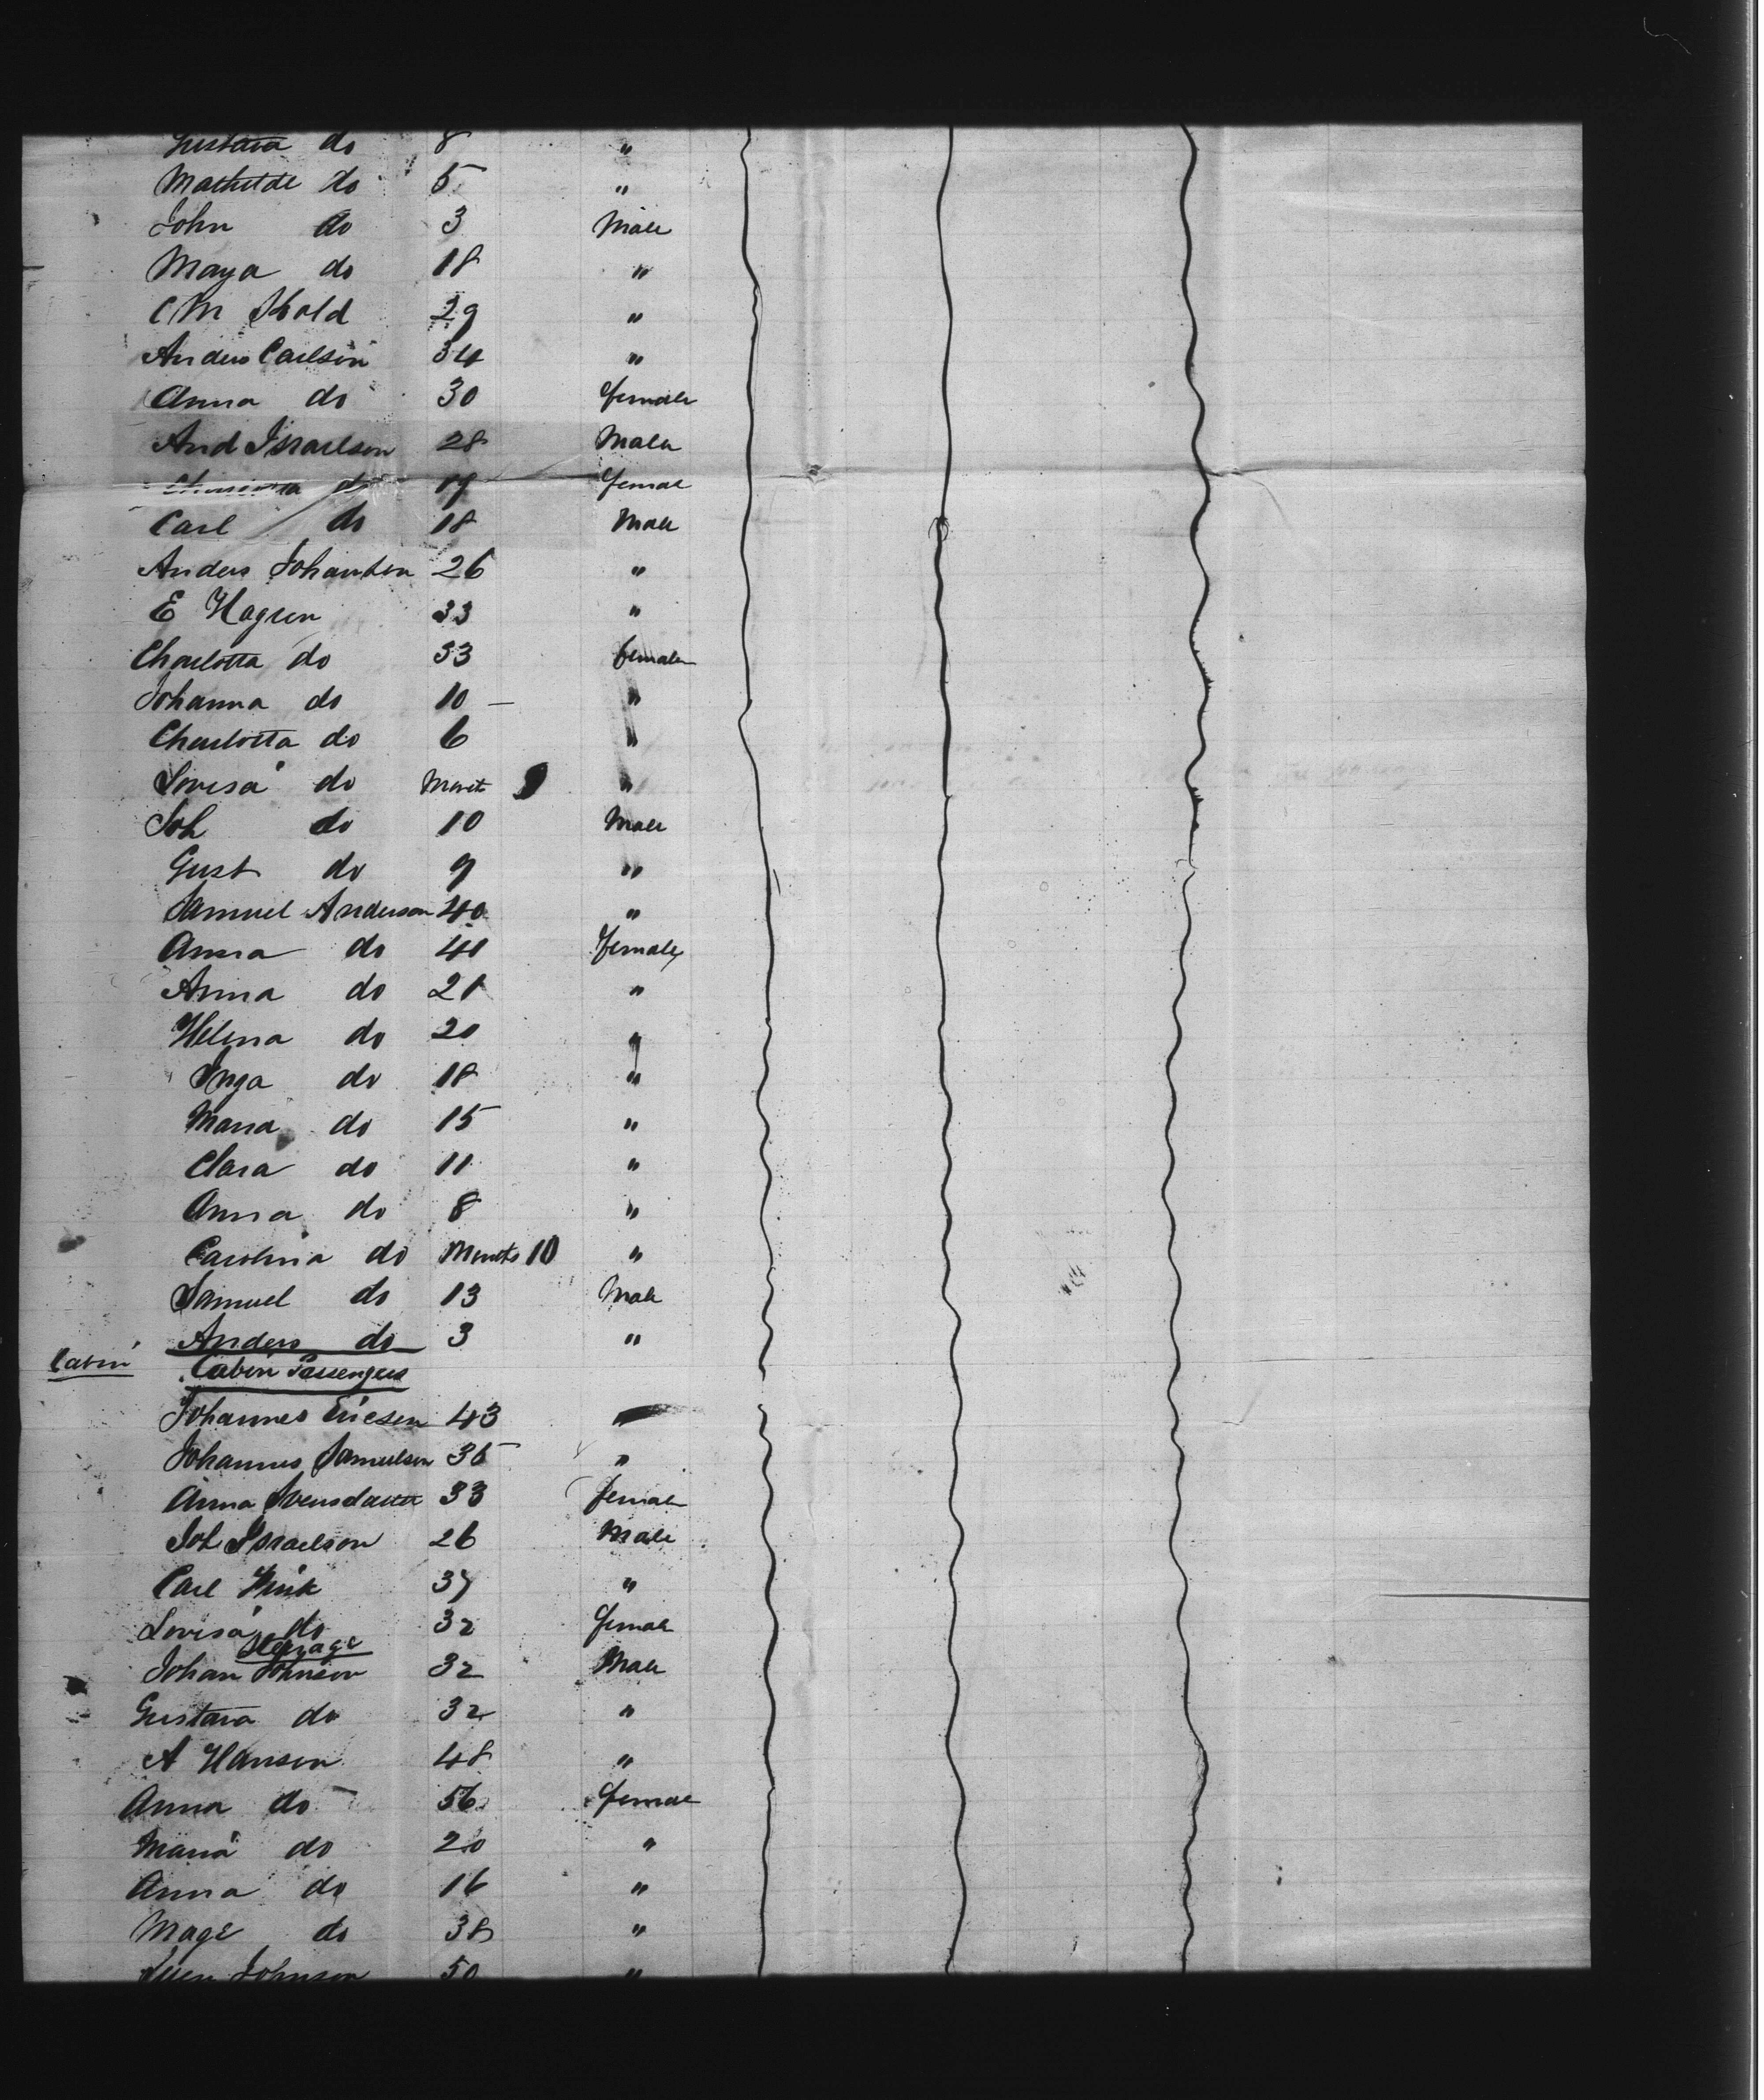 Gustava do 8 "
Mathilde do 5 "
John do 3 Male
Maya do 18 "
C M Skold 29 "
Anders Carlson 34 "
Anna do 30 female
And Israelson 28 Male
do 19 female
Carl do 18 Male
Anders Johanson 26 "
E Hagren 33 "
Charlotta do 33 female
Johanna do 10 — "
Charlotta do 6 "
Lovisa do Month 9 "
Joh do 10 Male
Gust do 9 "
Samuel Anderson 40 "
Anna do 40 female
Anna do 21 "
Helena do 20 "
Inga do 18 "
Maria do 15 "
Clara do 11 "
Anna do 8 "
Carolina do Months 10 "
Samuel do 13 Male
Anders do 3 "
Cabin Cabin Passengers
Johannes Ericson 43 "
Johannes Samuelson 35 "
Anna Svensdatter 33 female
Joh Israelson 26 Male
Carl 37 "
Lovisa do 32 female
Steerage
Johan Johnson 32 Male
Gustava do 32 "
A Hanson 48 "
Anna do 56 female
Maria do 20 "
Anna do 16 "
Mage do 38 "
Sven Johnson 50 "